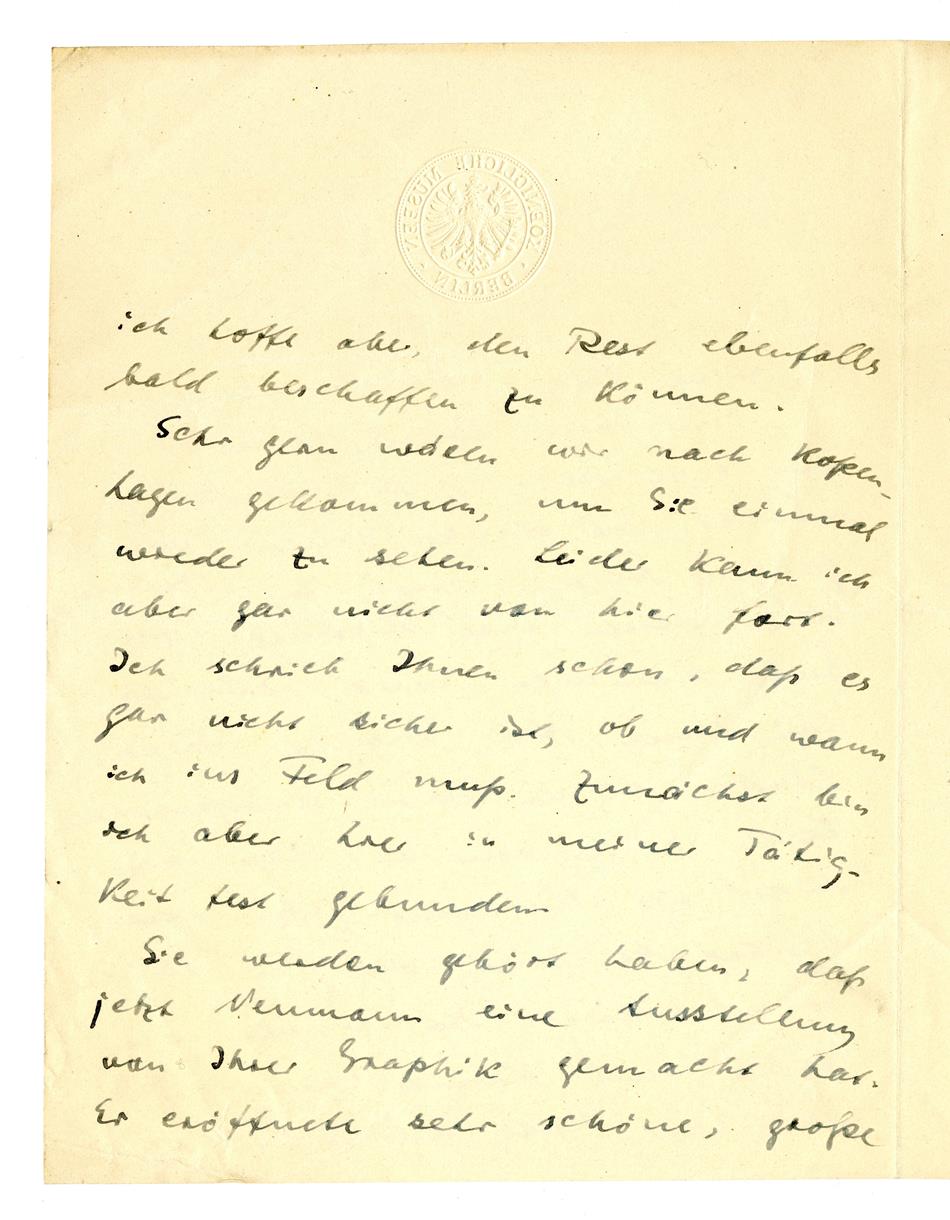 KOENIGLICHE MUSEEN · BERLIN ·
ich hoffe aber, den Rest ebenfalls
bald beschaffen zu können.
Sehr gern wären wir nach Kopen-
hagen gekommen, um Sie einmal
wieder zu sehen. Leider kann ich
aber gar nicht von hier fort.
Ich schrieb Ihnen schon, daß es
gar nicht sicher ist, ob und wann
ich ins Feld muß. Zunächst bin
ich aber hier in meiner Tätig-
keit fest gebunden
Sie werden gehört haben, daß
jetzt Neumann eine Ausstellung
von Ihrer Graphik gemacht hat.
Er eröffnete sehr schöne, große